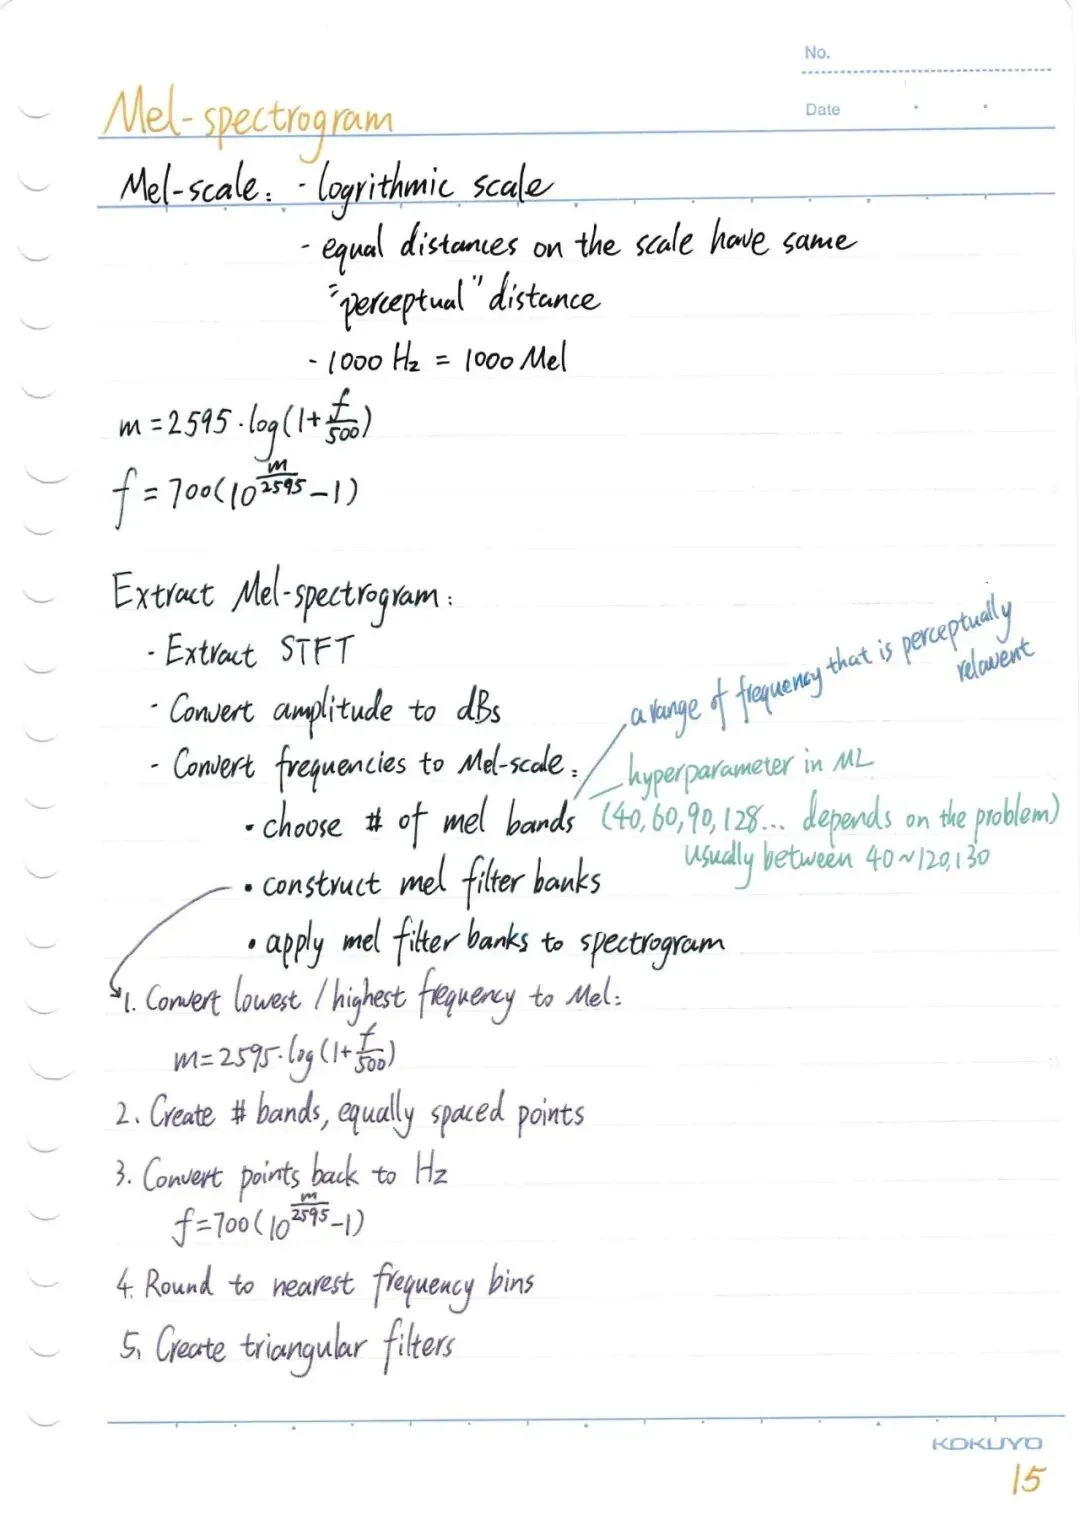 No.
Date
Mel-spectrogram
Mel-scale: - logrithmic scale
- equal distances on the scale have same
"perceptual" distance
- 1000 Hz = 1000 Mel
m = 2595 · log(1+f/500)
f = 700(10^(m/2595) - 1)
Extract Mel-spectrogram:
· Extract STFT
· Convert amplitude to dBs
- Convert frequencies to Mel-scale:
a range of frequency that is perceptually
relavent
hyperparameter in ML
· choose # of mel bands
(40, 60, 90, 128... depends on the problem)
Usually between 40~120,130
· construct mel filter banks
· apply mel filter banks to spectrogram
1. Convert lowest / highest frequency to Mel:
m = 2595 · log(1+f/500)
2. Create # bands, equally spaced points
3. Convert points back to Hz
f = 700(10^(m/2595) - 1)
4. Round to nearest frequency bins
5. Create triangular filters
KOKUYO
15